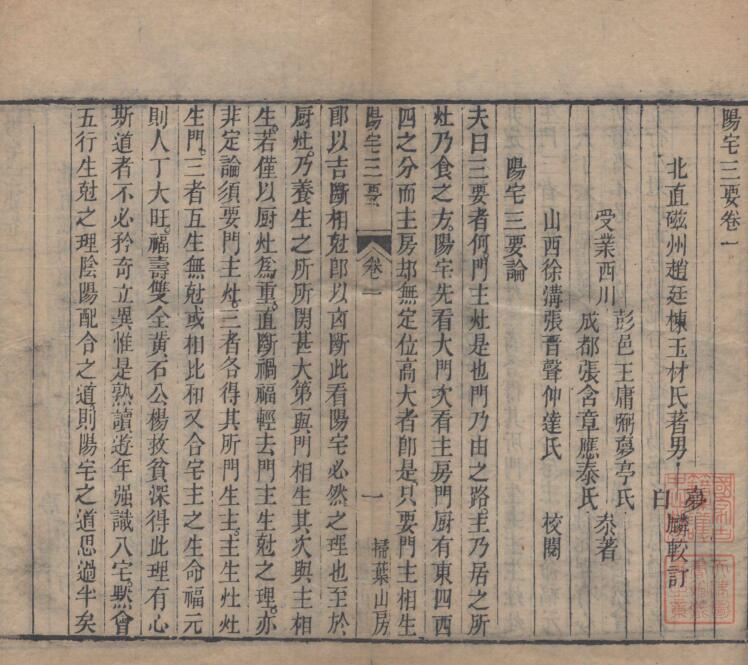 陽宅三要卷一
北直磁州趙廷棟玉材氏著男
夢
白
麟較訂
受業西川
彭邑王庸弼夢亭氏
成都張含章應泰氏
叅著
山西徐溝張晋聲仲達氏
校閱
陽宅三要論
夫曰三要者何門主灶是也門乃由之路主乃居之所
灶乃食之方陽宅先看大門次看主房門厨有東四西
四之分而主房却無定位高大者卽是只要門主相生
陽宅三要
卷一
一
掃葉山房
卽以吉斷相尅卽以凶斷此看陽宅必然之理也至於
厨灶乃養生之所所関甚大第一與門相生其次與主相
生若僅以厨灶爲重直斷禍福輕去門主生尅之理亦
非定論須要門主灶三者各得其所門生主主生灶灶
生門三者互生無尅或相比和又合宅主之生命福元
則人丁大旺福壽雙全黃石公楊救貧深得此理有心
斯道者不必矜奇立異惟是熟讀遊年强識八宅默會
五行生尅之理陰陽配合之道則陽宅之道思過半矣